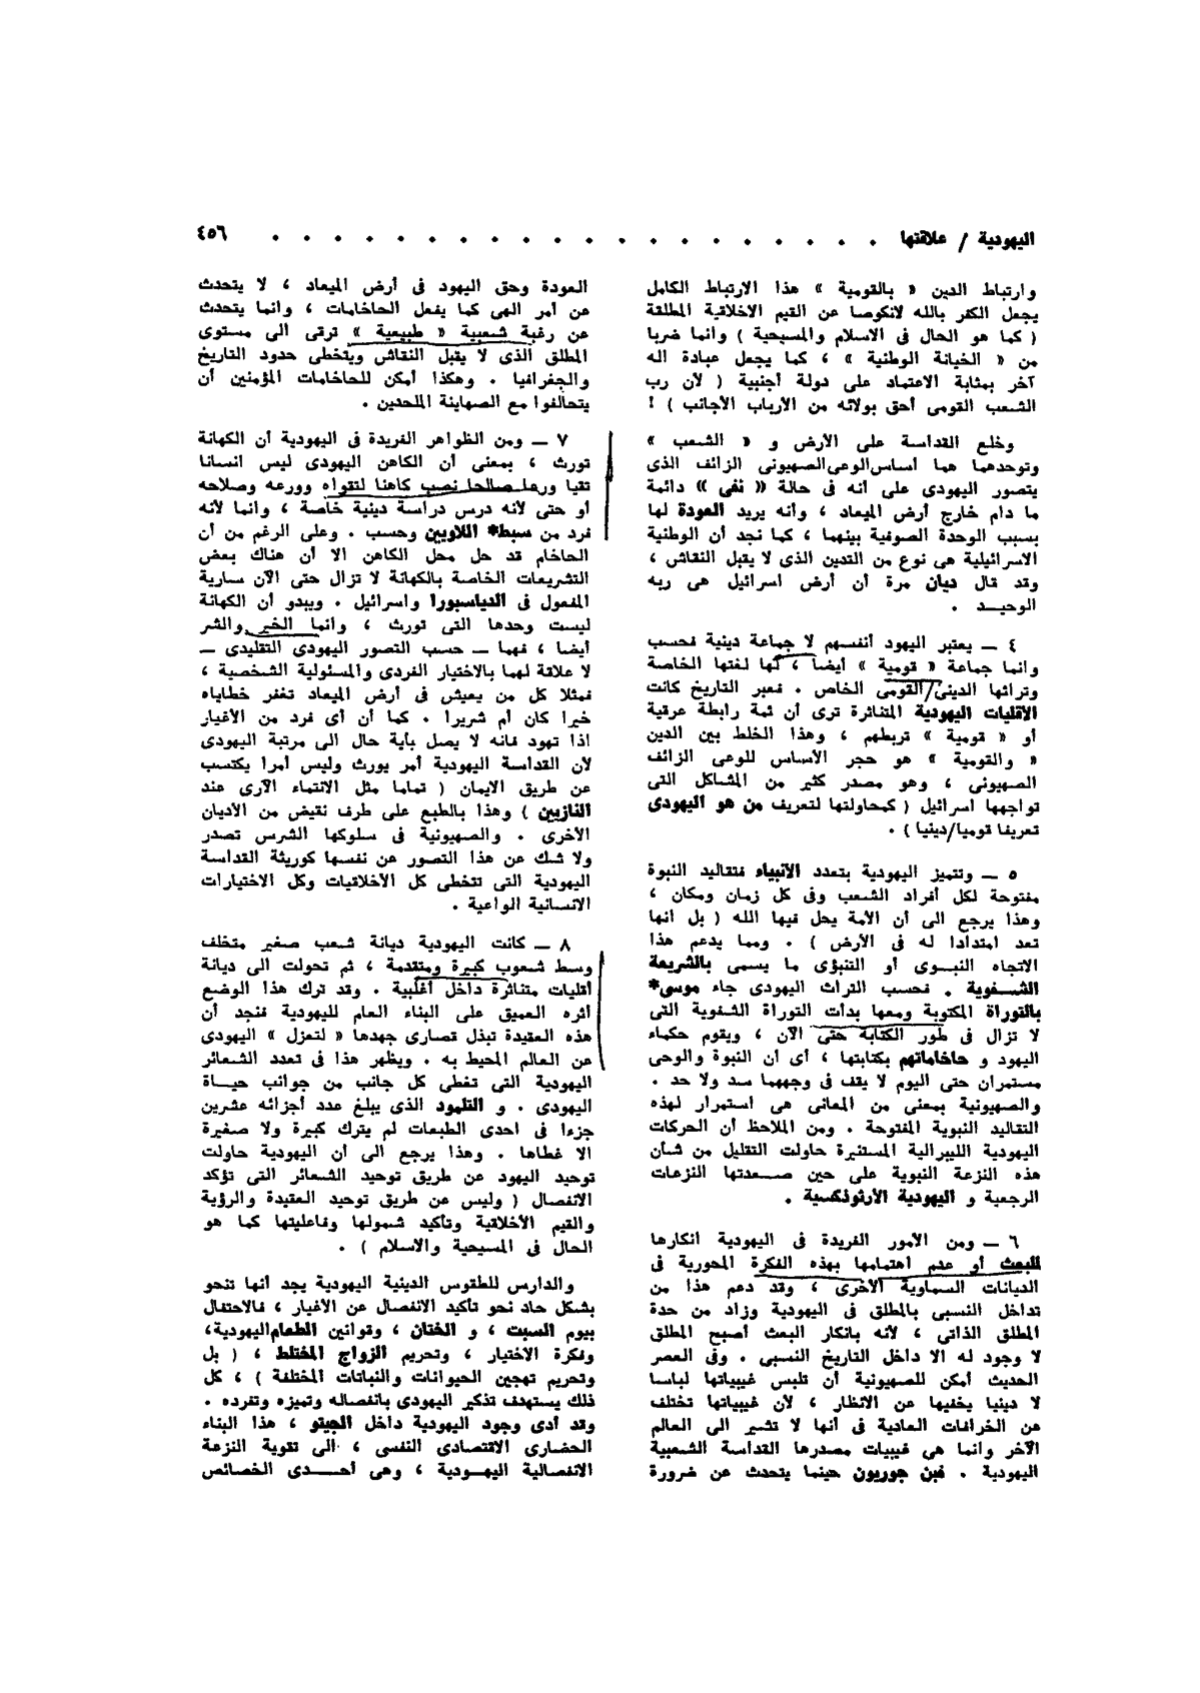 اليهودية / علاقتها . . . . . . . . . . . . . . . . . . . . ٤٥٦
وارتباط الدين « بالقومية » هذا الارتباط الكامل
يجعل الكفر بالله لانكوصا عن القيم الاخلاقية المطلقة
( كما هو الحال فى الاسلام والمسيحية ) وانما ضربا
من « الخيانة الوطنية » ، كما يجعل عبادة اله
آخر بمثابة الاعتماد على دولة أجنبية ( لأن رب
الشعب القومى أحق بولائه من الأرباب الأجانب ) !
وخلع القداسة على الأرض و « الشعب »
وتوحدهما هما أساس الوعى الصهيونى الزائف الذى
يتصور اليهودى على أنه فى حالة « نفى » دائمة
ما دام خارج أرض الميعاد ، وأنه يريد العودة لها
بسبب الوحدة الصوفية بينهما ، كما نجد أن الوطنية
الاسرائيلية هى نوع من التدين الذى لا يقبل النقاش ،
وقد قال ديان مرة أن أرض اسرائيل هى ربه
الوحيــد .
٤ ــ يعتبر اليهود أنفسهم لا جماعة دينية فحسب
وانما جماعة « قومية » أيضا ، لها لغتها الخاصة
وتراثها الدينى/القومى الخاص . فعبر التاريخ كانت
الأقليات اليهودية المتناثرة ترى أن ثمة رابطة عرقية
أو « قومية » تربطهم ، وهذا الخلط بين الدين
« والقومية » هو حجر الأساس للوعى الزائف
الصهيونى ، وهو مصدر كثير من المشاكل التى
تواجهها اسرائيل ( كمحاولتها لتعريف من هو اليهودى
تعريفا قوميا/دينيا ) .
٥ ــ وتتميز اليهودية بتعدد الأنبياء فتقاليد النبوة
مفتوحة لكل أفراد الشعب وفى كل زمان ومكان ،
وهذا يرجع الى أن الأمة يحل فيها الله ( بل انها
تعد امتدادا له فى الأرض ) . ومما يدعم هذا
الاتجاه النبــوى أو التنبؤى ما يسمى بالشريعة
الشــفوية . فحسب التراث اليهودى جاء موسى*
بالتوراة المكتوبة ومعها بدأت التوراة الشفوية التى
لا تزال فى طور الكتابة حتى الآن ، ويقوم حكماء
اليهود و حاخاماتهم بكتابتها ، أى أن النبوة والوحى
مستمران حتى اليوم لا يقف فى وجههما سد ولا حد .
والصهيونية بمعنى من المعانى هى استمرار لهذه
التقاليد النبوية المفتوحة . ومن الملاحظ أن الحركات
اليهودية الليبرالية المستنيرة حاولت التقليل من شأن
هذه النزعة النبوية على حين صــعدتها النزعات
الرجعية و اليهودية الأرثوذكسية .
٦ ــ ومن الأمور الفريدة فى اليهودية انكارها
للبعث أو عدم اهتمامها بهذه الفكرة المحورية فى
الديانات السماوية الأخرى ، وقد دعم هذا من
تداخل النسبى بالمطلق فى اليهودية وزاد من حدة
المطلق الذاتى ، لأنه بانكار البعث أصبح المطلق
لا وجود له الا داخل التاريخ النسبى . وفى العصر
الحديث أمكن للصهيونية أن تلبس غيبياتها لباسا
لا دينيا يخفيها عن الأنظار ، لأن غيبياتها تختلف
عن الخرافات العادية فى أنها لا تشير الى العالم
الآخر وانما هى غيبيات مصدرها القداسة الشعبية
اليهودية . فبن جوريون حينما يتحدث عن ضرورة
العودة وحق اليهود فى أرض الميعاد ، لا يتحدث
عن أمر الهى كما يفعل الحاخامات ، وانما يتحدث
عن رغبة شعبية « طبيعية » ترقى الى مستوى
المطلق الذى لا يقبل النقاش ويتخطى حدود التاريخ
والجغرافيا . وهكذا أمكن للحاخامات المؤمنين أن
يتحالفوا مع الصهاينة الملحدين .
٧ ــ ومن الظواهر الفريدة فى اليهودية أن الكهانة
تورث ، بمعنى أن الكاهن اليهودى ليس انسانا
تقيا ورعا صالحا نصب كاهنا لتقواه وورعه وصلاحه
أو حتى لأنه درس دراسة دينية خاصة ، وانما لأنه
فرد من سبط* اللاويين وحسب . وعلى الرغم من أن
الحاخام قد حل محل الكاهن الا أن هناك بعض
التشريعات الخاصة بالكهانة لا تزال حتى الآن سارية
المفعول فى الدياسبورا واسرائيل . ويبدو أن الكهانة
ليست وحدها التى تورث ، وانما الخير والشر
أيضا ، فهما ــ حسب التصور اليهودى التقليدى ــ
لا علاقة لهما بالاختيار الفردى والمسئولية الشخصية ،
فمثلا كل من يعيش فى أرض الميعاد تغفر خطاياه
خيرا كان أم شريرا . كما أن أى فرد من الأغيار
اذا تهود فانه لا يصل بأية حال الى مرتبة اليهودى
لأن القداسة اليهودية أمر يورث وليس أمرا يكتسب
عن طريق الايمان ( تماما مثل الانتماء الآرى عند
النازيين ) وهذا بالطبع على طرف نقيض من الأديان
الأخرى . والصهيونية فى سلوكها الشرس تصدر
ولا شك عن هذا التصور عن نفسها كوريثة القداسة
اليهودية التى تتخطى كل الأخلاقيات وكل الاختيارات
الانسانية الواعية .
٨ ــ كانت اليهودية ديانة شعب صغير متخلف
وسط شعوب كبيرة ومتقدمة ، ثم تحولت الى ديانة
أقليات متناثرة داخل أغلبية . وقد ترك هذا الوضع
أثره العميق على البناء العام لليهودية فنجد أن
هذه العقيدة تبذل قصارى جهدها « لتعزل » اليهودى
عن العالم المحيط به . ويظهر هذا فى تعدد الشعائر
اليهودية التى تغطى كل جانب من جوانب حيــاة
اليهودى . و التلمود الذى يبلغ عدد أجزائه عشرين
جزءا فى احدى الطبعات لم يترك كبيرة ولا صغيرة
الا غطاها . وهذا يرجع الى أن اليهودية حاولت
توحيد اليهود عن طريق توحيد الشعائر التى تؤكد
الانفصال ( وليس عن طريق توحيد العقيدة والرؤية
والقيم الأخلاقية وتأكيد شمولها وفاعليتها كما هو
الحال فى المسيحية والاسلام ) .
والدارس للطقوس الدينية اليهودية يجد أنها تنحو
بشكل حاد نحو تأكيد الانفصال عن الأغيار ، فالاحتفال
بيوم السبت ، و الختان ، وقوانين الطعام اليهودية ،
وفكرة الاختيار ، وتحريم الزواج المختلط ، ( بل
وتحريم تهجين الحيوانات والنباتات المختلفة ) ، كل
ذلك يستهدف تذكير اليهودى بانفصاله وتميزه وتفرده .
وقد أدى وجود اليهودية داخل الجيتو ، هذا البناء
الحضارى الاقتصادى النفسى ، الى تقوية النزعة
الانفصالية اليهــودية ، وهى أحــدى الخصائص